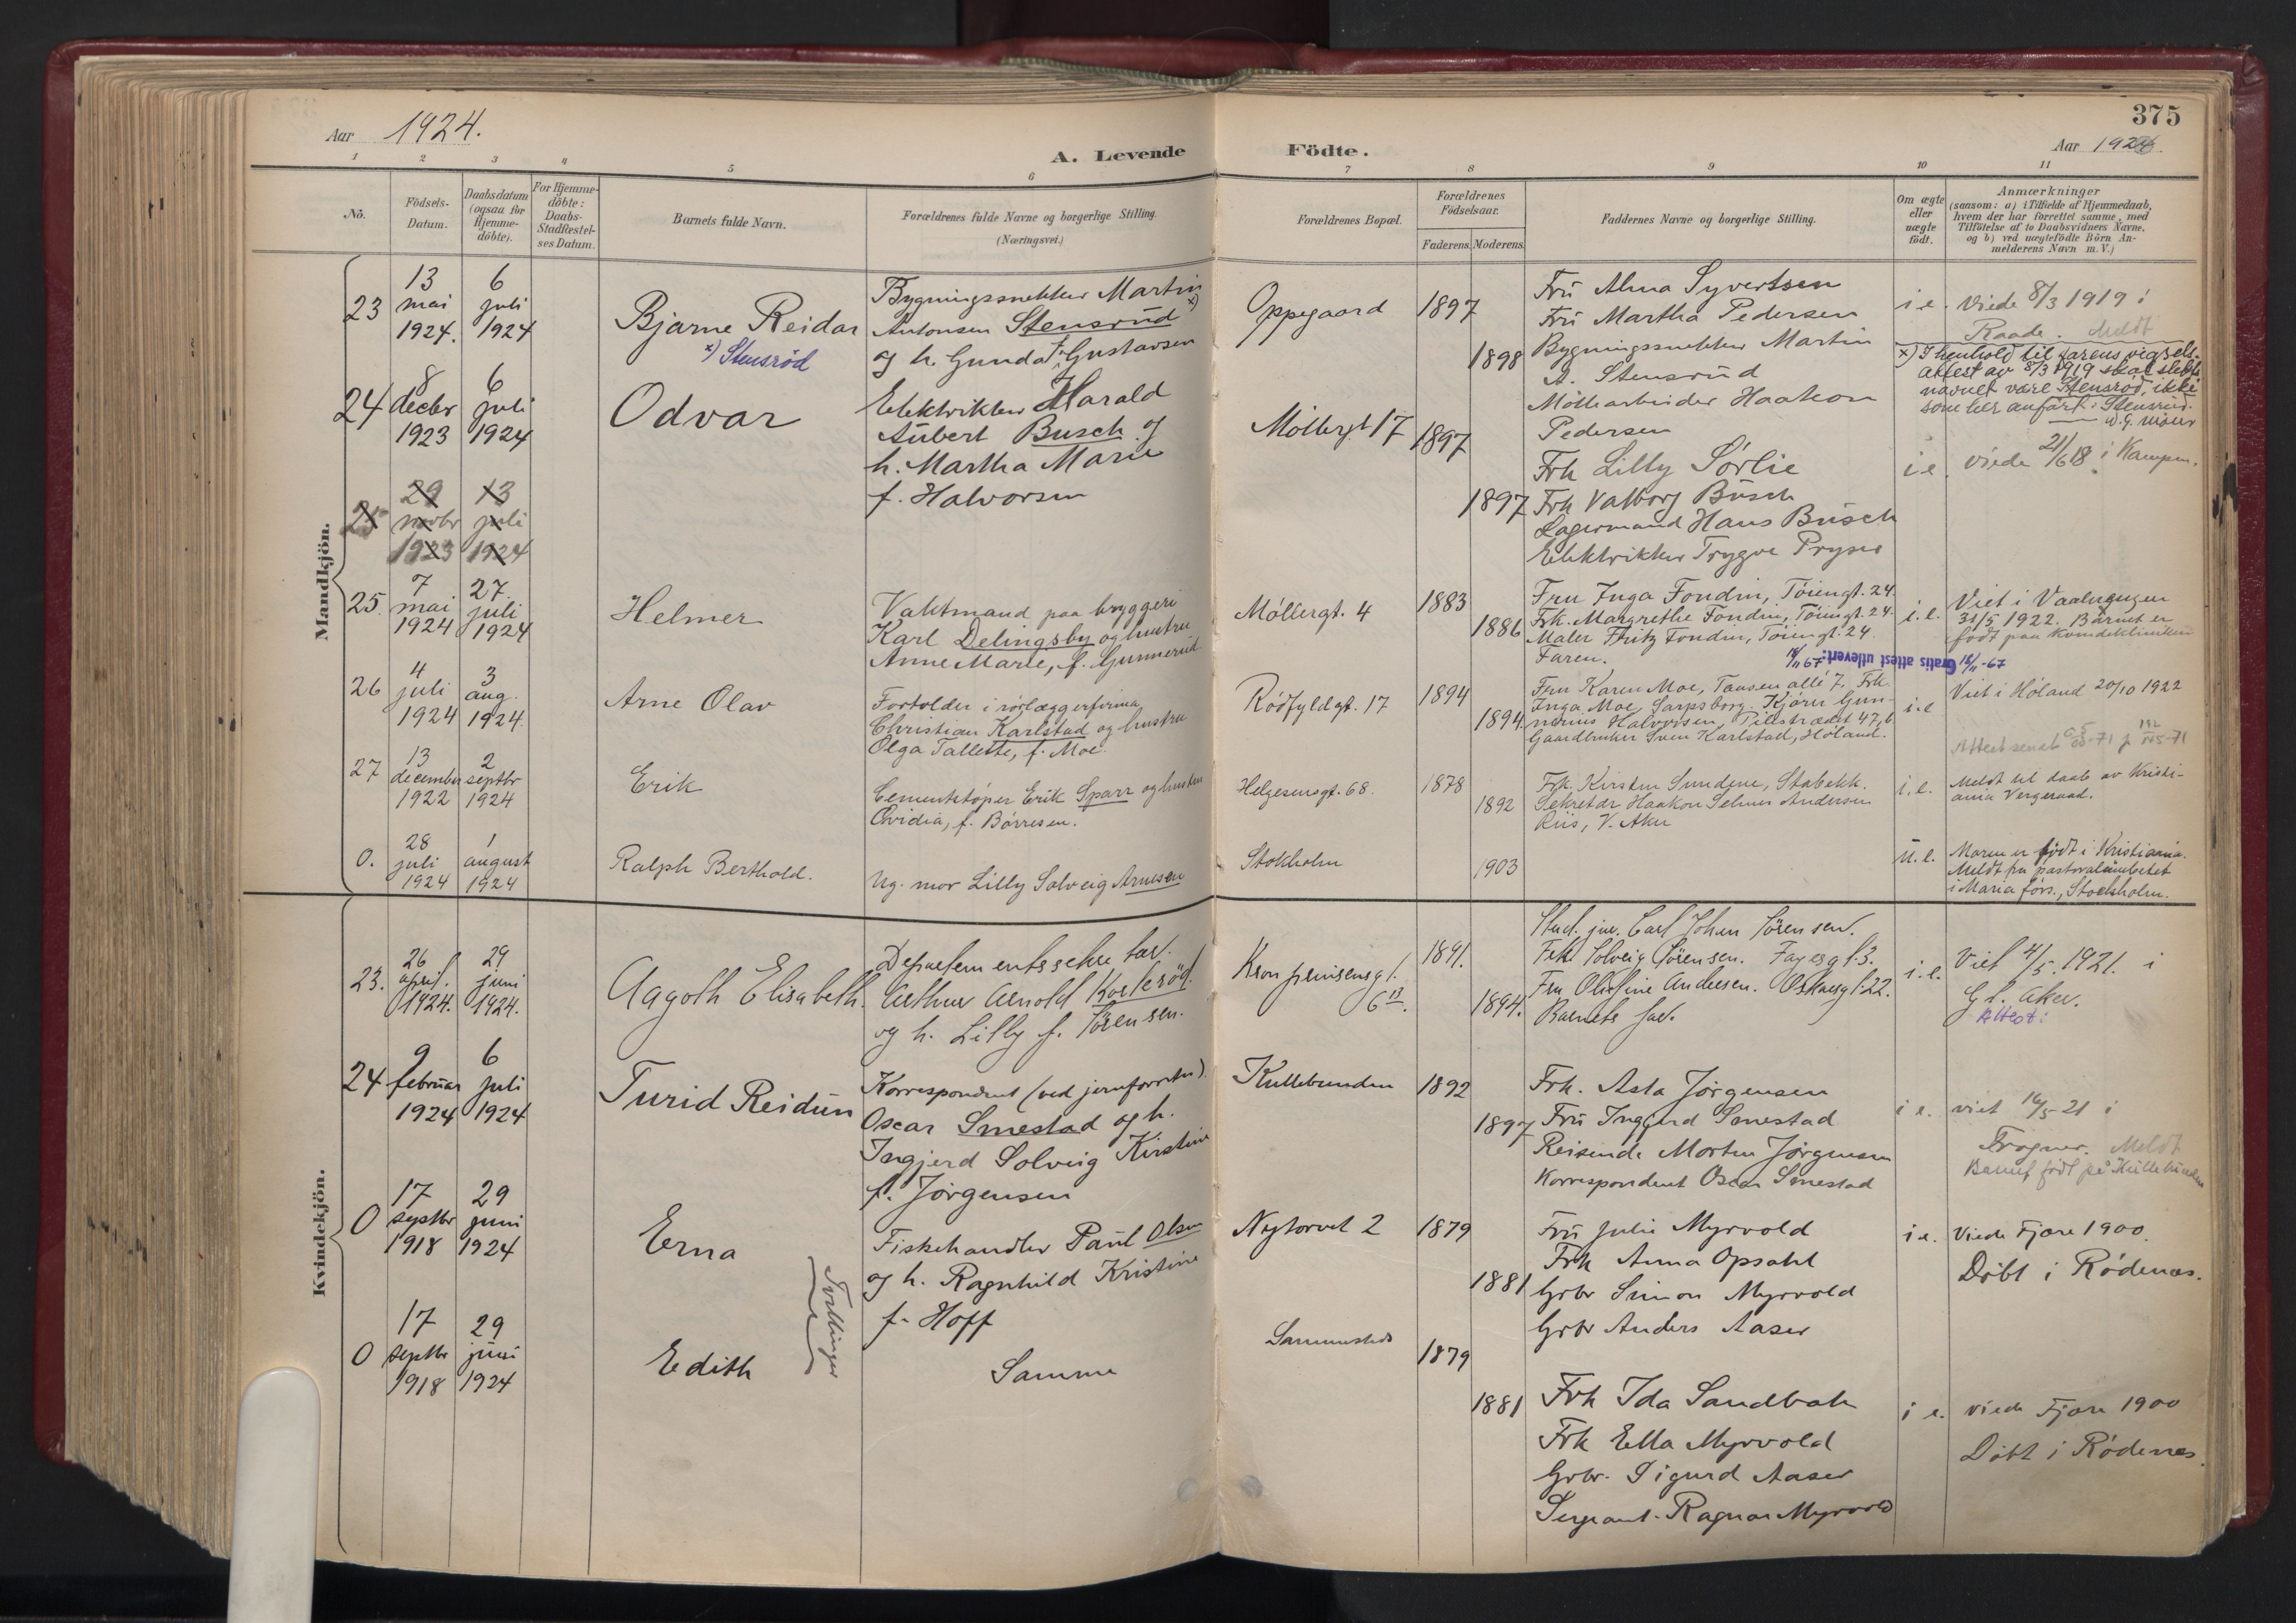 375
Aar 1924.
A. Levende Födte.
Aar 1924.
1 2 3 4 5 6 7 8 9 10 11
No.
Födsels-
Datum.
Daabsdatum
(ogsaa for
Hjemme-
döbte).
For Hjemme-
döbte:
Daabs-
Stadfæstel-
ses Datum.
Barnets fulde Navn.
Forældrenes fulde Navne og borgerlige Stilling.
(Næringsvei.)
Forældrenes Bopæl.
Forældrenes
Födselsaar.
Faderens. Moderens.
Faddernes Navne og borgerlige Stilling.
Om ægte
eller
uægte
födt.
Anmærkninger
(saasom: a) i Tilfælde af Hjemmedaab,
hvem der har forrettet samme, med
Tilföielse af to Daabsvidners Navne,
og b) ved uægtefödte Börn An-
melderens Navn m. V.)
Mandkjön.
23
13
mai
1924.
6
juli
1924
Bjarne Reidar
x) Stensröd
Bygningssnekker Martin
Antonsen Stensrud x)
og h. Gunda f. Gustavsen
Oppegaard
1897
1898
Fru Alma Syvertsen
Fru Martha Pedersen
Bygningssnekker Martin
A. Stensrud
Møllearbeider Haakon
Pedersen
i e.
Viede 8/3 1919 i
Raade. Meldt
x) I henhold til farens vigsels-
attest av 8/3 1919 skal slekts
navnet være Stensröd, ikke
som her anført: Stensrud.
24
8
decbr
1923
6
juli
1924
Odvar
Elektriker Harald
Aubert Busch og
h. Martha Marie
f. Halvorsen
Møllergt 17
1897
1897
Frk Lilly Sørlie
Frk Valborg Busch
Lagermand Hans Busch
Elektriker Trygve Pryser
i e.
viede 21/6 18 i Kampen.
25
29
novbr
1923
13
juli
1924
25.
7
mai
1924
27.
juli
1924
Helmer
Vaktmand paa bryggeri
Karl Delingsby og hustru
Anne Marie, f. Gunnerud
Møllergt. 4
1883
1886
Fru Inga Fondin, Töiengt. 24.
Frk. Margrethe Fondin, Töiengt. 24.
Maler Fritz Fondin, Töiengt. 24.
Faren.
i.e.
Viet i Vaalerengen
31/5 1922. Barnet er
født paa Kvindekliniken
Gratis attest utlevert: 18/11 67
18/11-67
26
4
juli
1924
3
aug.
1924.
Arne Olav
Forfolder i rörlæggerfirma
Christian Karlstad og hustru
Olga Tallette, f. Moe.
Rödfyldgt. 17
1894
1894.
Fru Karen Moe, Taasen allé 7. Frk.
Inga Moe, Sarpsborg. Kjörer Gun-
nerius Halvorsen, Pilestrædet 47, b
Gaardbruker Sven Karlstad, Höland.
i.e
Viet i Höland 20/10 1922
27
13
december
1922
2
septbr
1924
Erik
Cementstöper Erik Sparr og hustru
Ovidia, f. Börresen.
Helgesensgt. 68.
1878
1892
Frk. Kirsten Sundene, Stabekk.
Sekretær Haakon Selmer Andersen
Riis, V. Aker
i.e.
Meldt til daab av Kristi-
ania Vergeraad.
0.
28
juli
1924
1
august
1924
Ralph Berthold.
Ug. mor Lilly Solveig Arnesen
Stokholm
1903
u.e.
Moren er født i Kristiania.
Meldt fra pastoralembetet
i Maria förs., Stockholm.
Kvindekjön.
23.
26
april.
1924.
29
juni
1924.
Aagoth Elisabeth.
Departementssekretær.
Arthur Arnold Korleröd.
og h. Lilly f. Sörensen.
Kronprinsensgt.
6 III.
1891.
1894.
Stud. jur. Carl Johan Sörensen.
Frk. Solveig Sörensen. Fayesgt. 3.
Fru Olufine Andresen. Oskarsgt. 22.
Barnets far.
i.e.
Viet 4/5. 1921. i
Gl. Aker.
Attest:
24
9
februar
1924
6
juli
1924
Turid Reidun
Korrespondent (ved jernforretn)
Oscar Smestad og h.
Ingjerd Solveig Kirstine
f. Jörgensen
Kullebunden
1892
1897
Frk. Asta Jörgensen
Fru Ingjerd Smestad
Reisende Morten Jörgensen
Korrespondent Oscar Smestad
i e.
viet 16/5-21 i
Frogner. Meldt
Barnet født på Kullebunden
0
17
septbr
1918
29
juni
1924
Erna
Tvillinger
Fiskehandler Paul Olsen
og h. Ragnhild Kristine
f. Hoff
Nytorvet 2
1879
1881
Fru Julie Myrvold
Frk Anna Opsahl
Grbr Simon Myrvold
Grbr Anders Aaser
i e.
Viede Fjære 1900.
Döbt i Rödenes.
0
17
septbr
1918
29
juni
1924
Edith
Samme
Sammesteds
1879
1881
Frk Ida Sandbæk
Frk Ella Myrvold
Grbr. Sigurd Aaser
Sergeant Ragnar Myrvold
i e.
viede Fjære 1900
Döbt i Rödenes.